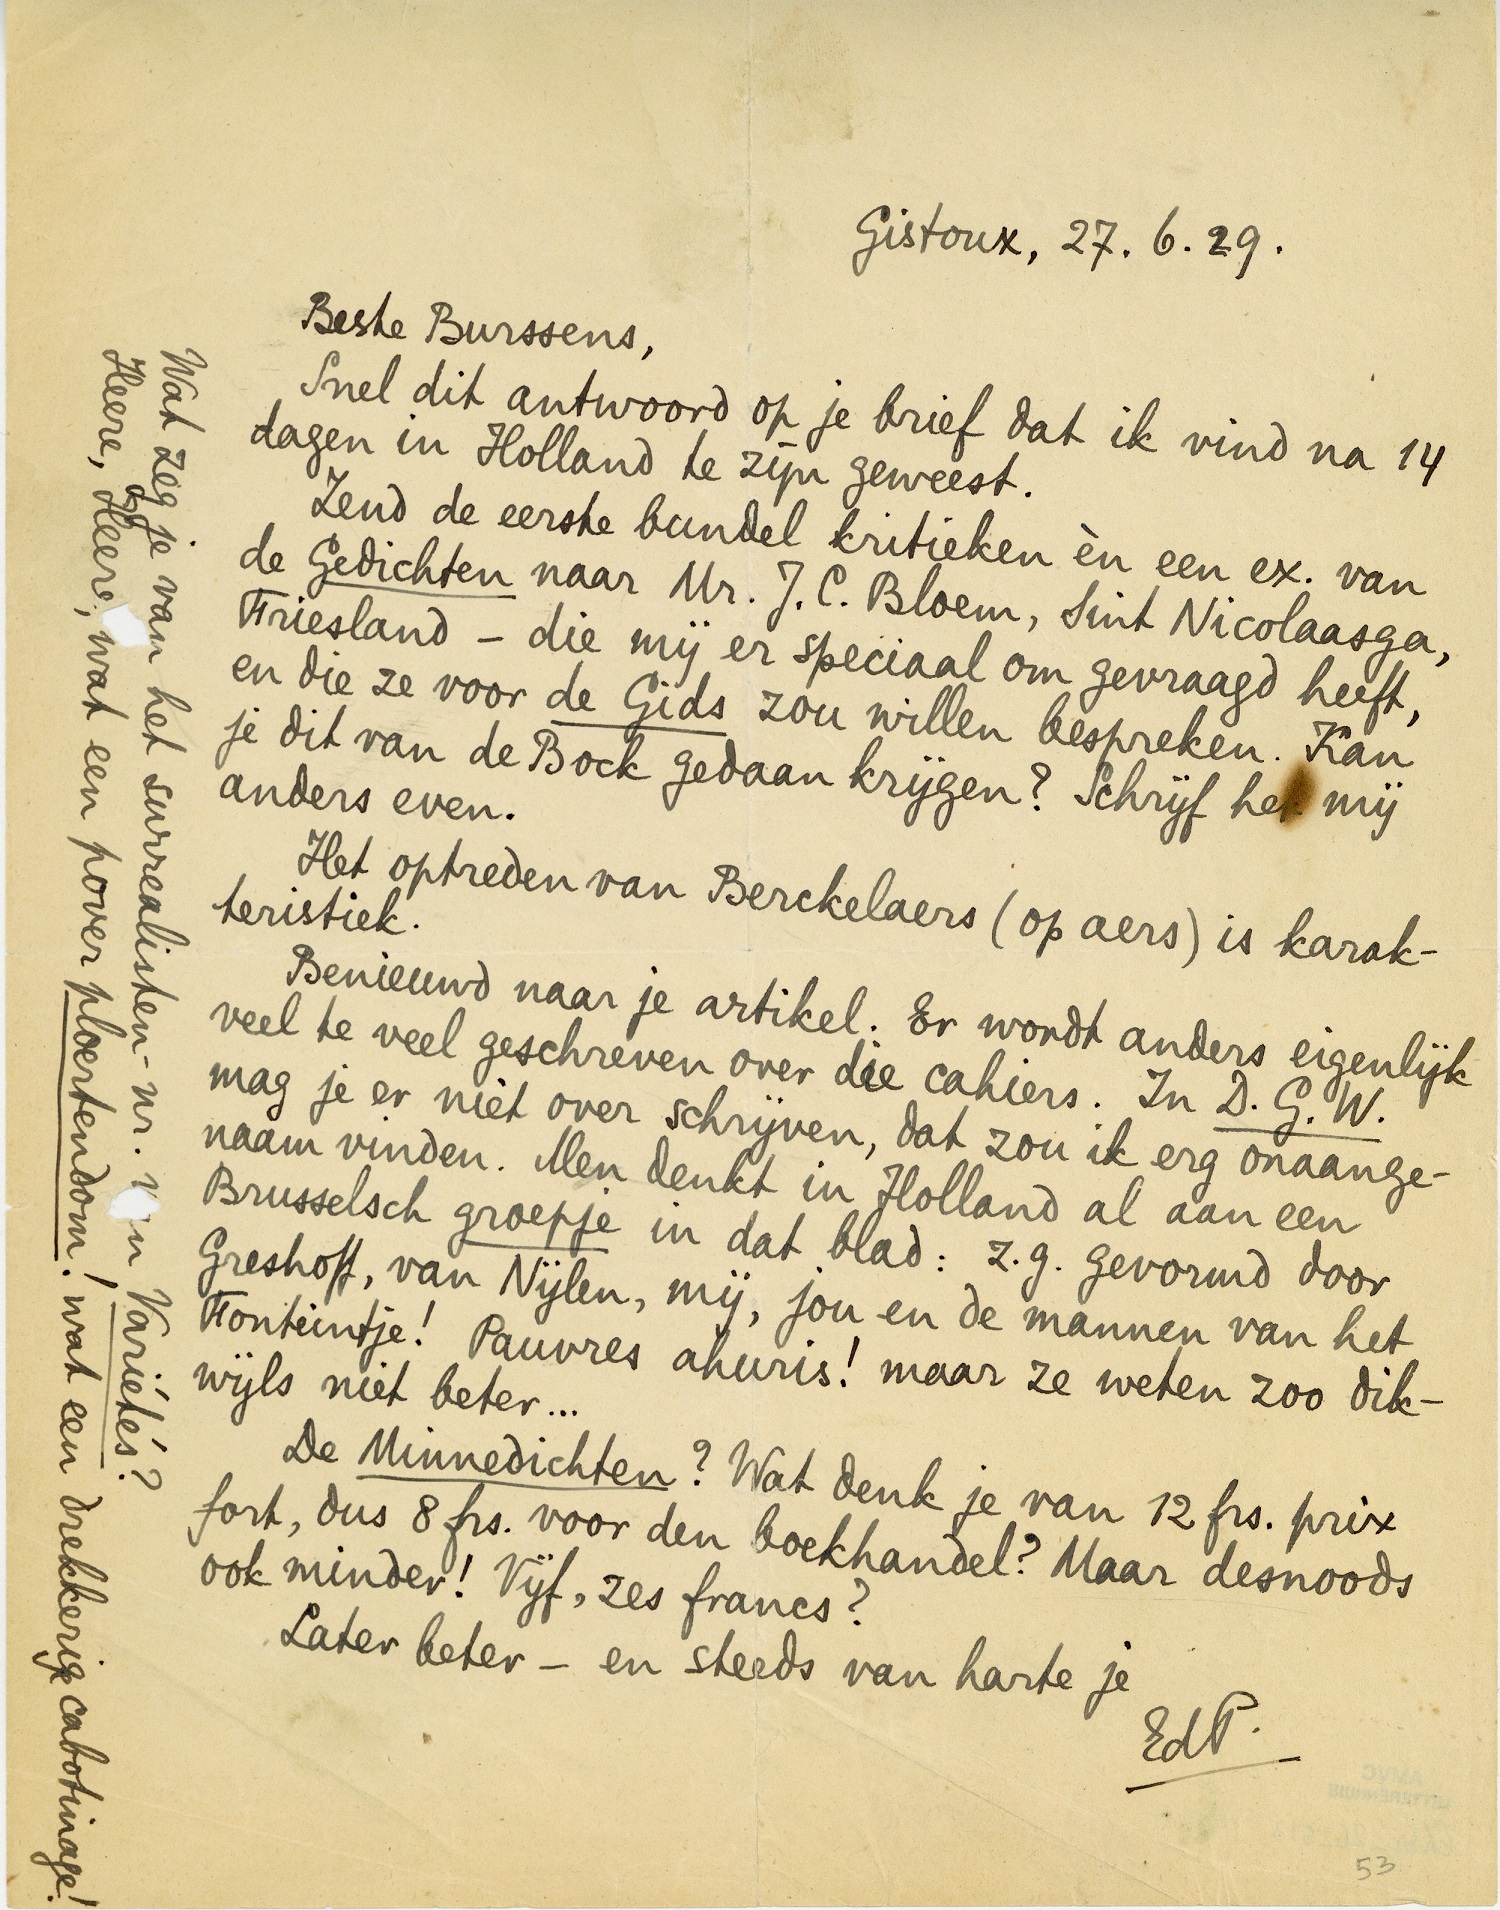 Gistoux, 27.6.29.
Beste Burssens,
Snel dit antwoord op je brief dat ik vind na 14
dagen in Holland te zijn geweest.
Zend de eerste bundel kritieken èn een ex. van
de Gedichten naar Mr. J. C. Bloem, Sint Nicolaasga,
Friesland – die mij er speciaal om gevraagd heeft,
en die ze voor de Gids zou willen bespreken. Kan
je dit van de Bock gedaan krijgen? Schrijf het mij
anders even.
Het optreden van Berckelaers (op aers) is karak-
teristiek.
Benieuwd naar je artikel. Er wordt anders eigenlijk
veel te veel geschreven over die cahiers. In D. G. W.
mag je er niet over schrijven, dat zou ik erg onaange-
naam vinden. Men denkt in Holland al aan een
Brusselsch groepje in dat blad: z.g. gevormd door
Greshoff, van Nijlen, mij, jou en de mannen van het
Fonteintje! Pauvres ahuris! maar ze weten zoo dik-
wijls niet beter...
De Minnedichten? Wat denk je van 12 frs. prix
fort, dus 8 frs. voor den boekhandel? Maar desnoods
ook minder! Vijf, zes francs?
Later beter – en steeds van harte je
EdP.
Wat zeg je van het surrealisten-nr. van Variétés?
Heere, o Heere, wat een pover ploertendom! wat een drekkerig cabotinage!
53